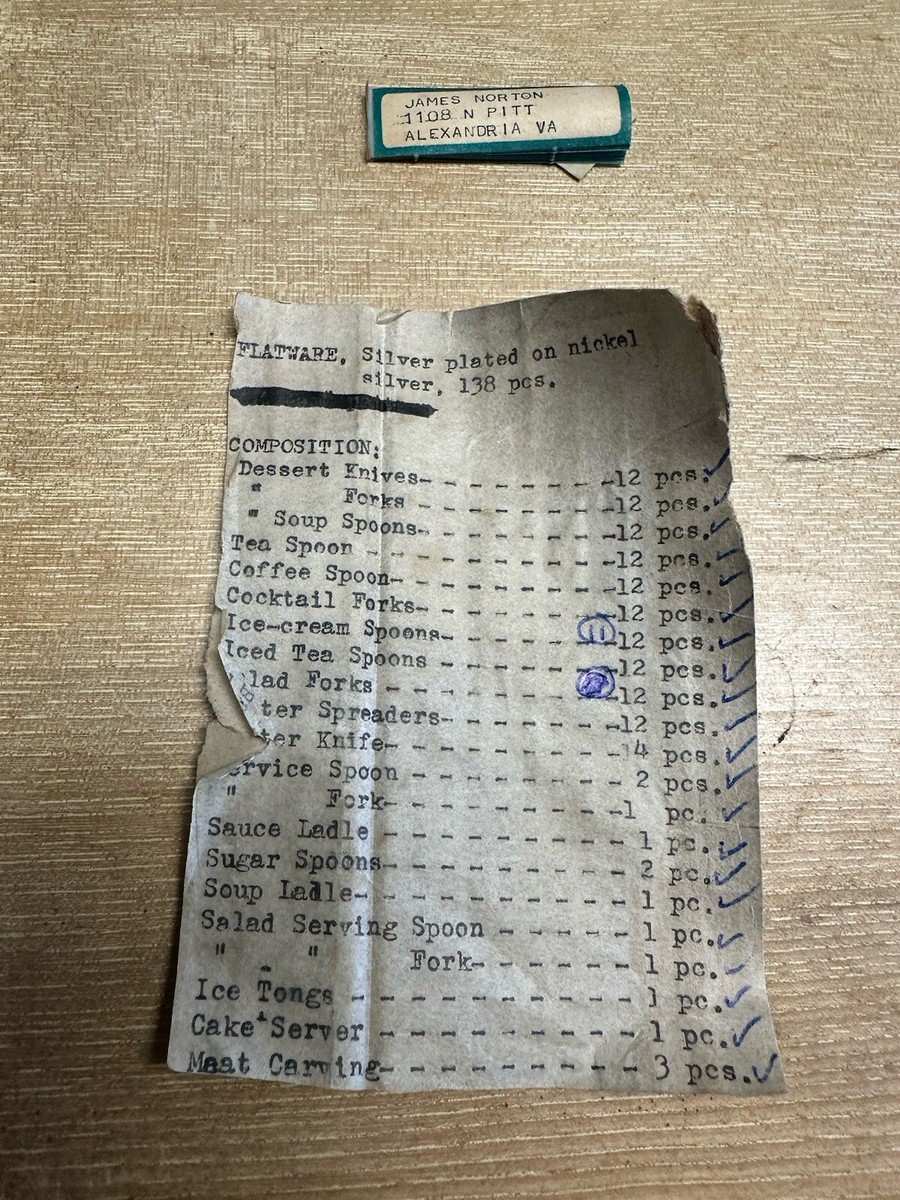 JAMES NORTON
1108 N PITT
ALEXANDRIA VA
FLATWARE, Silver plated on nickel
silver, 138 pcs.
COMPOSITION:
Dessert Knives- - - - - - - - -12 pcs.
" Forks - - - - - - - - -12 pcs.
" Soup Spoons- - - - - - - -12 pcs.
Tea Spoon - - - - - - - - - -12 pcs.
Coffee Spoon- - - - - - - - -12 pcs.
Cocktail Forks- - - - - - - -12 pcs.
Ice-cream Spoons- - - - - 11 -12 pcs.
Iced Tea Spoons - - - - - - -12 pcs.
lad Forks - - - - - - - -12 pcs.
ter Spreaders- - - - - - -12 pcs.
ter Knife- - - - - - - - - 4 pcs.
ervice Spoon - - - - - - - - 2 pcs.
" Fork- - - - - - - - -1 pc.
Sauce Ladle - - - - - - - - - 1 pc.
Sugar Spoons- - - - - - - - - 2 pc.
Soup Ladle- - - - - - - - - - 1 pc.
Salad Serving Spoon - - - - - 1 pc.
" " Fork- - - - - - 1 pc.
Ice Tongs - - - - - - - - - - 1 pc.
Cake Server - - - - - - - - - 1 pc.
Meat Carving- - - - - - - - - 3 pcs.